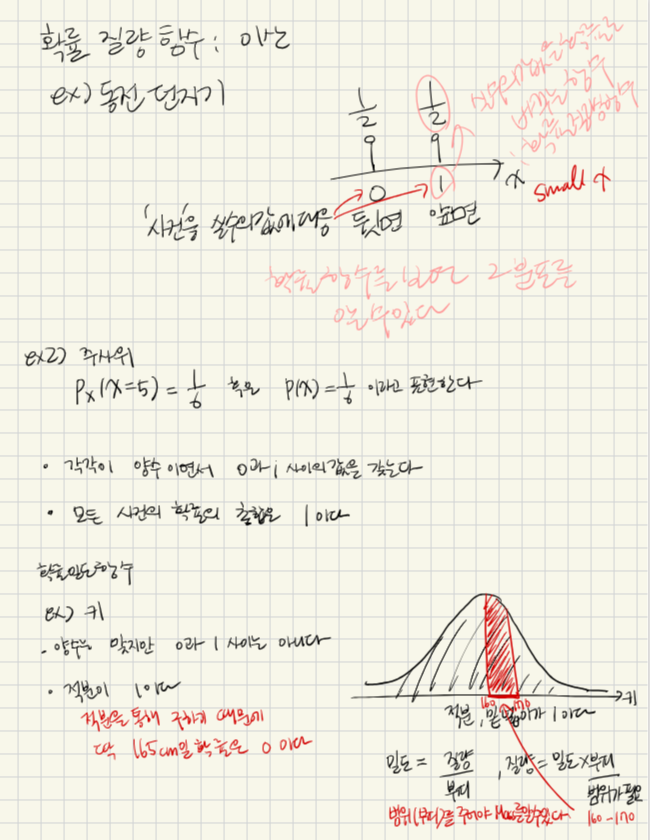 확률 질량 함수 : 이산
ex) 동전 던지기
1/2 1/2
0 1 x small x
'사건'을 실수의 값에 대응 뒷면 앞면
확률 함수를 보면 그 분포를
알 수 있다
ex2) 주사위
Px(X=5) = 1/6 혹은 P(X)=1/6 이라고 표현한다
• 각각이 양수이면서 0과 1 사이의 값을 갖는다
• 모든 사건의 확률의 총합은 1이다
확률밀도함수
ex) 키
- 양수는 맞지만 0과 1 사이는 아니다
• 적분이 1이다
적분을 통해 구하기 때문에
딱 165cm일 확률은 0이다
160 170 키
적분, 밑넓이가 1이다
밀도 = 질량/부피 , 질량 = 밀도 × 부피
범위가 필요
범위(부피)를 주어야 Mass를 알 수 있다 160-170